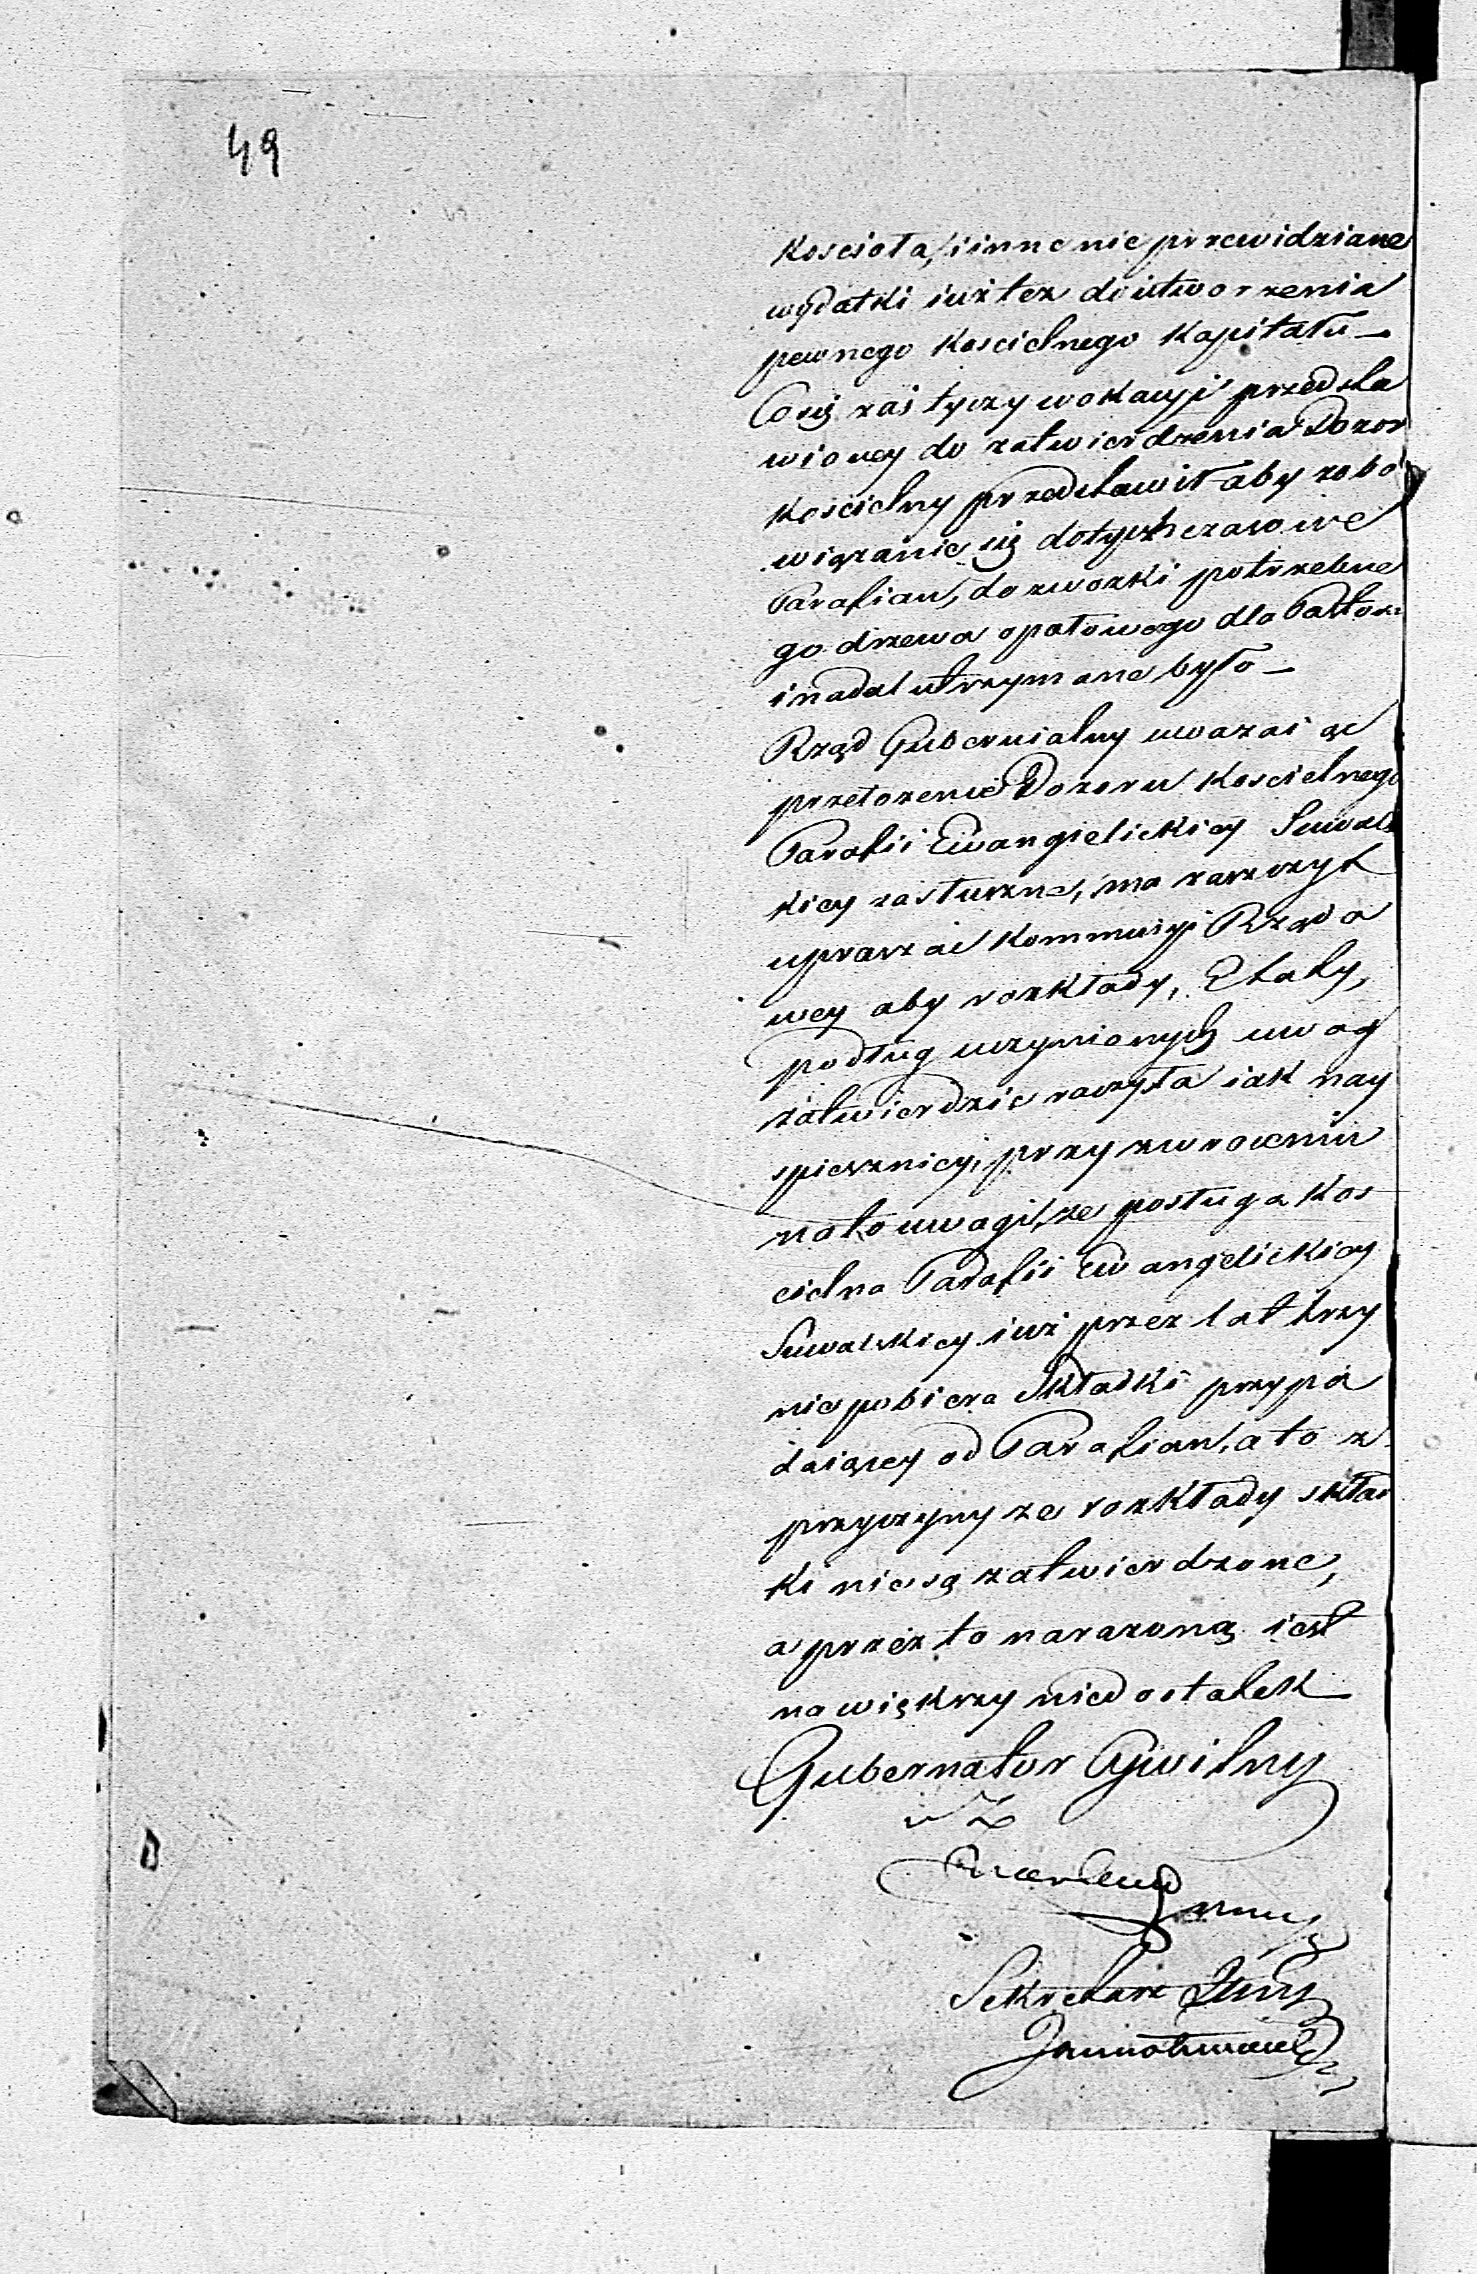 49
Kościoła, i inne nie przewidziane
wydatki iuż też do utworzenia
pewnego Koscielnego Kapitału –
Co się zaś tyczy wokacyi przedsta
wioney do zatwierdzenia Dozor
Kościelny przedstawił aby zobo
wiązanie się dotychczasowe
Parafian, do zwozki potrzebne
go drzewa opałowego dla Pastora
i nadal utrzymane było –
Rząd Gubernialny uważaiąc
przełożenie Dozoru Koscielnego
Parafii Ewangielickiey Suwal
kiey za słuszne, ma zaszczyt
upraszać Kommissyi Rządo
wey aby rozkłady, Etaty,
podług uczynionych uwag
zatwierdzić raczyła iak nay
spieszniey, przy zwroceniu
na to uwagi, że posługa Kos
cielna Parafii Ewangelickiey
Suwalskiey iuż przez lat trzy
nie pobiera składki przypa
daiącey od Parafian, a to z
przyczyny że rozkłady skład
ki nie są zatwierdzone,
a przez to narażoną iest
na większy niedostatek
Gubernator Cywilny
w Z
Sekretarz Jlny